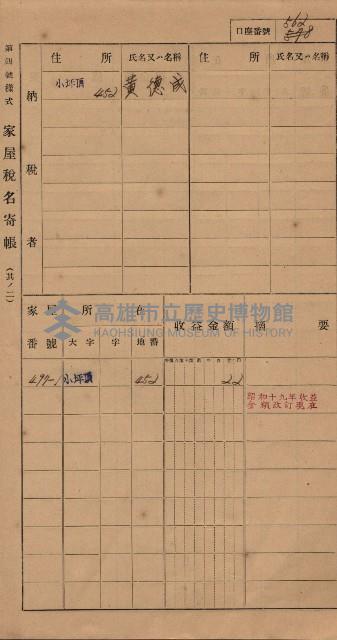 口座番號 562
598
第四號樣式 家屋稅名寄帳 (其ノ二)
納稅者
住所 氏名又ハ名稱 住所 氏名又ハ名稱
小坪頂 452 黄德成
高雄市立歷史博物館
KAOHSIUNG MUSEUM OF HISTORY
家屋所在 收益金額 摘要
番號 大字 字 地番
497-1 小坪頂 452 22
昭和十九年收益
金額改訂現在